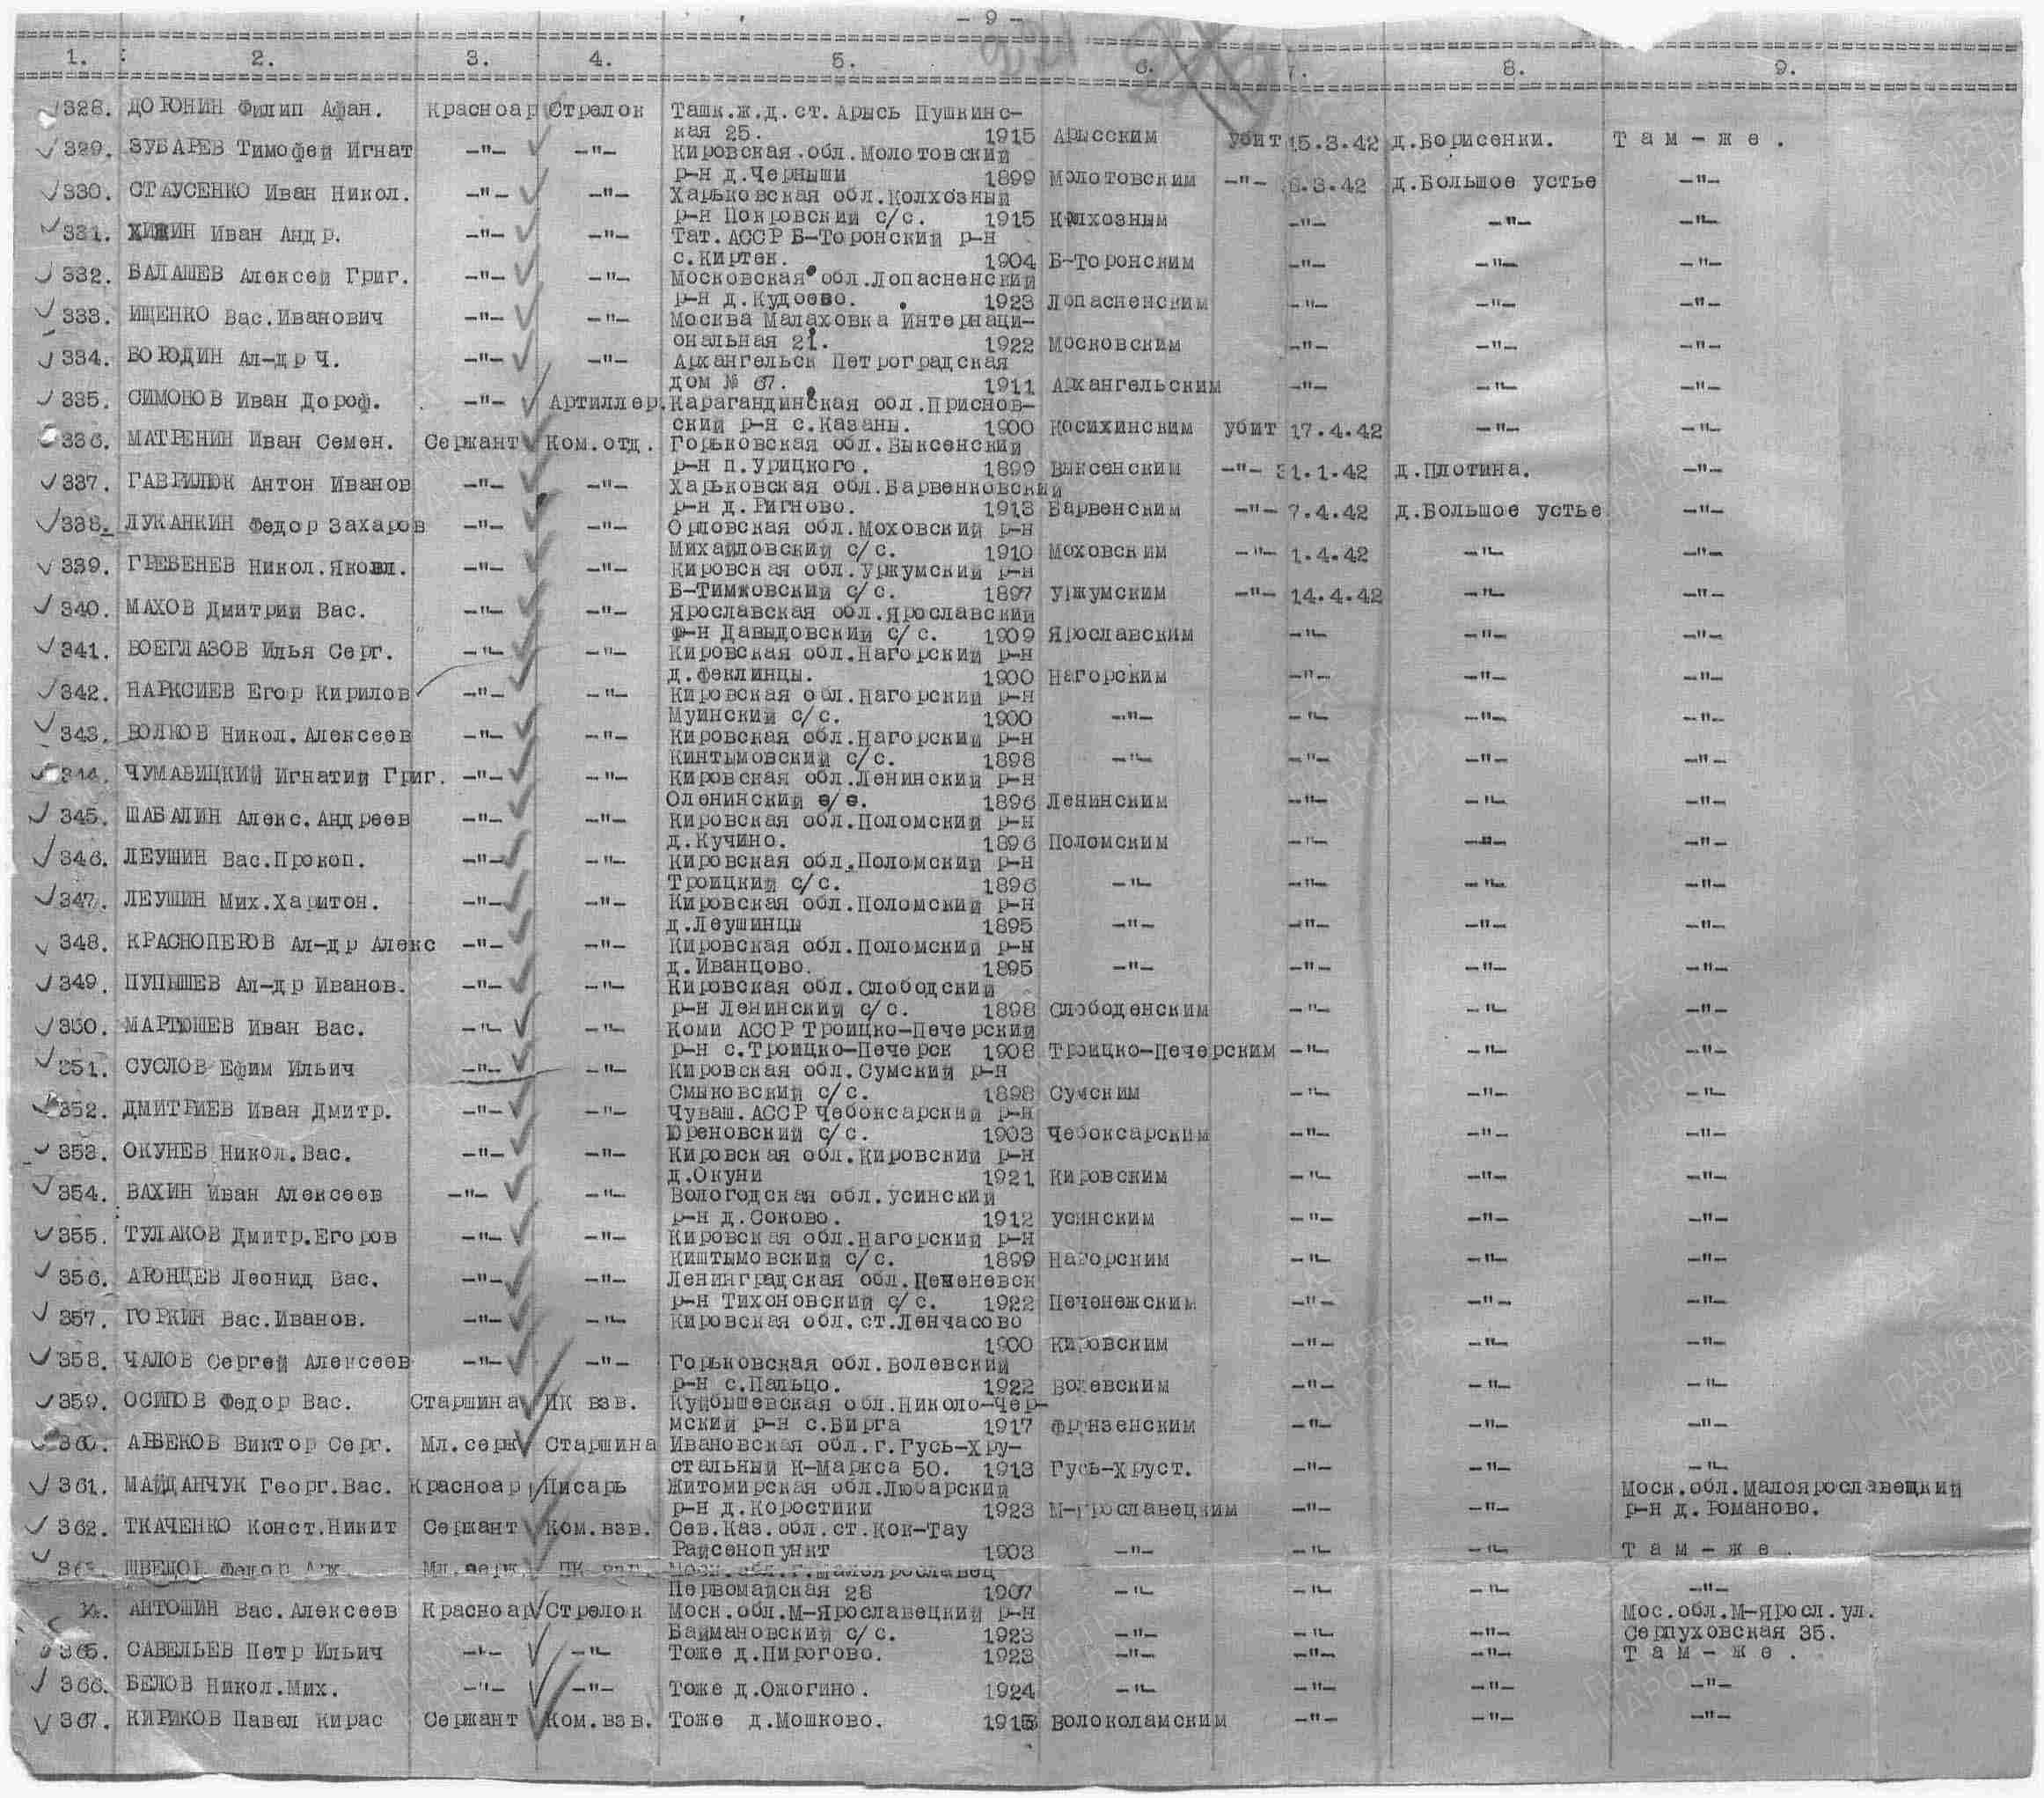 - 9 -
1. 2. 3. 4. 5. 6. 7. 8. 9.
328. ДОЮНИН Филип Афан. Красноар Стрелок Ташк.ж.д.ст.Арысь Пушкинс-
кая 25. 1915 Арысским убит 15.3.42 д.Борисенки. Т а м - ж е .
329. ЗУБАРЕВ Тимофей Игнат -"- -"- Кировская обл.Молотовский
р-н д.Черныши 1899 Молотовским -"- 3.42 д.Большое устье -"-
330. СТАУСЕНКО Иван Никол. -"- -"- Харьковская обл.Колхозный
р-н Покровский с/с. 1915 Колхозным -"- -"- -"-
331. ХИЖИН Иван Андр. -"- -"- Тат.АССР Б-Торонский р-н
с.Киртек. 1904 Б-Торонским -"- -"- -"-
332. БАЛАШЕВ Алексей Григ. -"- -"- Московская обл.Лопасненский
р-н д.Кудоево. 1923 Лопасненским -"- -"- -"-
333. ИЩЕНКО Вас.Иванович -"- -"- Москва Малаховка Интернаци-
ональная 21. 1922 Московским -"- -"- -"-
334. БОЮДИН Ал-др Ч. -"- -"- Архангельск Петроградская
дом № 67. 1911 Архангельским -"- -"- -"-
335. СИМОНОВ Иван Дороф. -"- Артиллер. Карагандинская обл.Приснов-
ский р-н с.Казаны. 1900 Косихинским убит 17.4.42 -"- -"-
336. МАТРЕНИН Иван Семен. Сержант Ком.отд. Горьковская обл.Выксенский
р-н п.Урицкого. 1899 Выксенским -"- 31.1.42 д.Плотина. -"-
337. ГАВРИЛЮК Антон Иванов -"- -"- Харьковская обл.Барвенковский
р-н д.Ригново. 1913 Барвенским -"- 7.4.42 д.Большое устье -"-
338. ЛУКАНКИН Федор Захаров -"- -"- Орловская обл.Моховский р-н
Михайловский с/с. 1910 Моховским -"- 1.4.42 -"- -"-
339. ГРЕБЕНЕВ Никол.Яковл. -"- -"- Кировская обл.Уржумский р-н
Б-Тимковский с/с. 1897 Уржумским -"- 14.4.42 -"- -"-
340. МАХОВ Дмитрий Вас. -"- -"- Ярославская обл.Ярославский
р-н Давыдовский с/с. 1909 Ярославским -"- -"- -"-
341. ВОЕГЛАЗОВ Илья Серг. -"- -"- Кировская обл.Нагорский р-н
д.Феклинцы. 1900 Нагорским -"- -"- -"-
342. НАРКСИЕВ Егор Кирилов -"- -"- Кировская обл.Нагорский р-н
Муинский с/с. 1900 -"- -"- -"- -"-
343. ВОЛКОВ Никол.Алексеев -"- -"- Кировская обл.Нагорский р-н
Кинтымовский с/с. 1898 -"- -"- -"- -"-
344. ЧУМАВИЦКИЙ Игнатий Григ. -"- -"- Кировская обл.Ленинский р-н
Оленинский с/с. 1896 Ленинским -"- -"- -"-
345. ШАБАЛИН Алекс.Андреев -"- -"- Кировская обл.Поломский р-н
д.Кучино. 1896 Поломским -"- -"- -"-
346. ЛЕУШИН Вас.Прокоп. -"- -"- Кировская обл.Поломский р-н
Троицкий с/с. 1896 -"- -"- -"- -"-
347. ЛЕУШИН Мих.Харитон. -"- -"- Кировская обл.Поломский р-н
д.Леушинцы 1895 -"- -"- -"- -"-
348. КРАСНОПЕЮВ Ал-др Алекс -"- -"- Кировская обл.Поломский р-н
д.Иванцово. 1895 -"- -"- -"- -"-
349. ПУПЫШЕВ Ал-др Иванов. -"- -"- Кировская обл.Слободский
р-н Ленинский с/с. 1898 Слободенским -"- -"- -"-
350. МАРТЮШЕВ Иван Вас. -"- -"- Коми АССР Троицко-Печерский
р-н с.Троицко-Печерск 1908 Троицко-Печерским -"- -"- -"-
351. СУСЛОВ Ефим Ильич -"- -"- Кировская обл.Сумский р-н
Смыковский с/с. 1898 Сумским -"- -"- -"-
352. ДМИТРИЕВ Иван Дмитр. -"- -"- Чуваш.АССР Чебоксарский р-н
Юреновский с/с. 1903 Чебоксарским -"- -"- -"-
353. ОКУНЕВ Никол.Вас. -"- -"- Кировская обл.Кировский р-н
д.Окуни 1921 Кировским -"- -"- -"-
354. ВАХИН Иван Алексеев -"- -"- Вологодская обл.Усинский
р-н д.Соково. 1912 Усинским -"- -"- -"-
355. ТУЛАКОВ Дмитр.Егоров -"- -"- Кировская обл.Нагорский р-н
Киштымовский с/с. 1899 Нагорским -"- -"- -"-
356. АЮНЦЕВ Леонид Вас. -"- -"- Ленинградская обл.Печеневск
р-н Тихоновский с/с. 1922 Печенежским -"- -"- -"-
357. ГОРКИН Вас.Иванов. -"- -"- Кировская обл.ст.Ленчасово
1900 Кировским -"- -"- -"-
358. ЧАЛОВ Сергей Алексеев -"- -"- Горьковская обл.Волевский
р-н с.Пальцо. 1922 Волевским -"- -"- -"-
359. ОСИПОВ Федор Вас. Старшина ПК взв. Куйбышевская обл.Николо-Чер-
мский р-н с.Бирга 1917 Фрунзенским -"- -"- -"-
360. АРБЕКОВ Виктор Серг. Мл.серж Старшина Ивановская обл.г.Гусь-Хру-
стальный К-Маркса 50. 1913 Гусь-Хруст. -"- -"- -"-
361. МАЙДАНЧУК Георг.Вас. Красноар Писарь Житомирская обл.Любарский Моск.обл.Малоярославецкий
р-н д.Коростики 1923 М-Ярославецким -"- -"- р-н д.Романово.
362. ТКАЧЕНКО Конст.Никит Сержант Ком.взв. Сев.Каз.обл.ст.Кок-Тау
Райсенопункт 1903 -"- -"- -"- Т а м - ж е .
363. ШВЕДОВ Федор Мл.серж. ПК взв. Моск.обл.г.Малоярославец
Первомайская 28 1907 -"- -"- -"- -"-
АНТОШИН Вас.Алексеев Красноар Стрелок Моск.обл.М-Ярославецкий р-н Мос.обл.М-Яросл.ул.
Баймановский с/с. 1923 -"- -"- -"- Серпуховская 35.
365. САВЕЛЬЕВ Петр Ильич -"- -"- Тоже д.Пирогово. 1923 -"- -"- -"- Т а м - ж е .
366. БЕЛОВ Никол.Мих. -"- -"- Тоже д.Ожогино. 1924 -"- -"- -"- -"-
367. КИРИКОВ Павел Кирас Сержант Ком.взв. Тоже д.Мошково. Волоколамским -"- -"- -"-